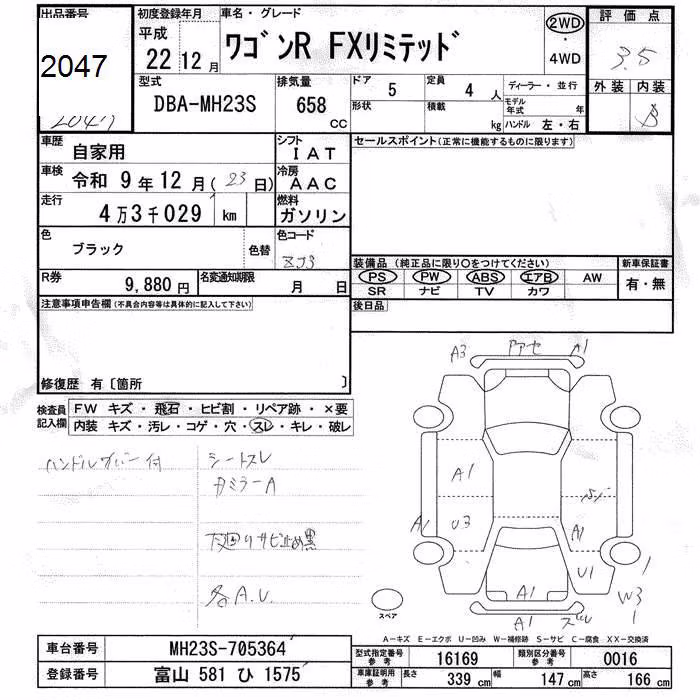 出品番号
2047
2047
初度登録年月
平成
22 12 月
車名・グレード
ワゴンR FXリミテッド
2WD
・
4WD
評価点
3.5
外装 内装
B
型式
DBA-MH23S
排気量
658
CC
ドア 5
形状
定員 4 人
積載 kg
ディーラー・並行
モデル年式 年
ハンドル 左・右
車歴 自家用
シフト IAT
セールスポイント(正常に機能するものに限ります)
車検 令和 9 年 12 月 (23 日)
冷房 AAC
走行 4 万 3 千 029 km
燃料 ガソリン
色 ブラック 色替
色コード ZJ3
装備品 (純正品に限り○をつけてください)
新車保証書
PS PW ABS エアB AW
SR ナビ TV カワ
有・無
R券 9,880 円
名変通知期限 月 日
後日品
注意事項申告欄(不具合内容等は具体的に記入して下さい)
修復歴 有〔箇所 〕
検査員記入欄
FW キズ・飛石・ヒビ割・リペア跡・×要
内装 キズ・汚レ・コゲ・穴・スレ・キレ・破レ
ハンドルカバー付
シートスレ
カミラーA
下廻りサビ止め黒
各A.U.
A3 A1
A1
A1 U3
A1
U1
W3
A1
A1 ズレ
スペア
A-キズ E-エクボ U-凹み W-補修跡 S-サビ C-腐食 XX-交換済
車台番号 MH23S-705364
登録番号 富山 581 ひ 1575
型式指定番号 参考 16169
類別区分番号 参考 0016
車庫証明用 参考 長さ 339 cm 幅 147 cm 高さ 166 cm